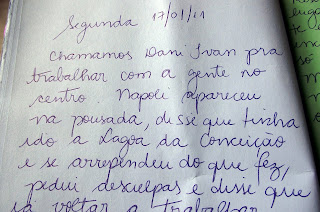 Segunda 17/01/11
Chamamos Dani Ivan pra
trabalhar com a gente no
centro. Napoli apareceu
na pousada, disse que tinha
ido a Lagoa da Conceição
e se arrependeu do que fez,
pediu desculpas e disse que
voltar a trabalhar